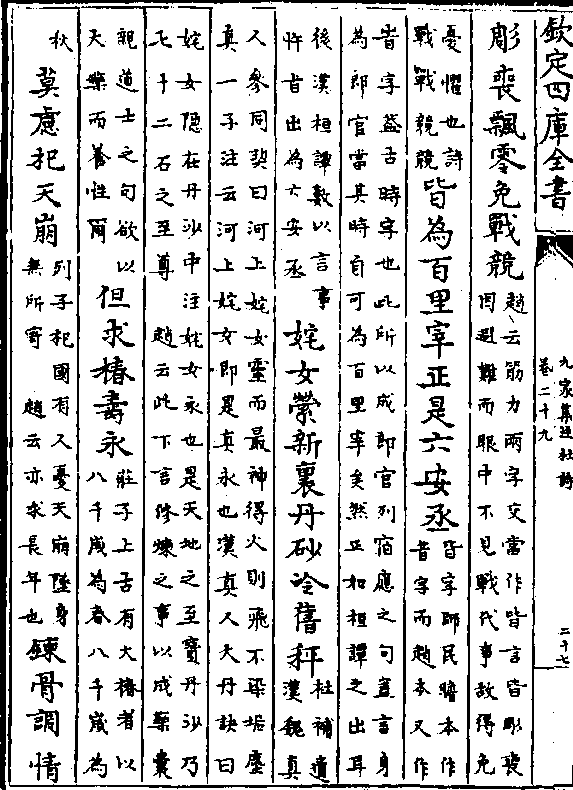 欽定四庫全書
九家集註杜詩
卷二十九
二十七
彫喪飄零免戰競
趙云筋力兩字交當作皆言皆彫喪
因避難而眼中不見戰伐事故得免
憂懼也詩
戰戰競競
皆為百里宰正是六安丞
皆字師民瞻本作
昔字而趙本又作
旹字蓋古時字也此所以成郎官列宿應之句蓋言身
為郎官當其時自可為百里宰矣然正如桓譚之出耳
後漢桓譚數以言事
忤旨出為六安丞
姹女縈新裹丹砂冷舊秤
杜補遺
漢魏真
人參同契曰河上姹女靈而最神得火則飛不染垢塵
真一子注云河上姹女即是真永也漢真人大丹訣曰
姹女隱在丹沙中注姹女永也是天地之至寶丹沙乃
七十二石之至尊 趙云此下言修煉之事以成藥囊
親道士之句欲以
天藥而養性爾
但求椿壽永
莊子上古有大椿者以
八千歲為春八千歲為
秋
莫慮杞天崩
列子杞國有人憂天崩墜身
無所寄 趙云亦求長年也
鍊骨調情